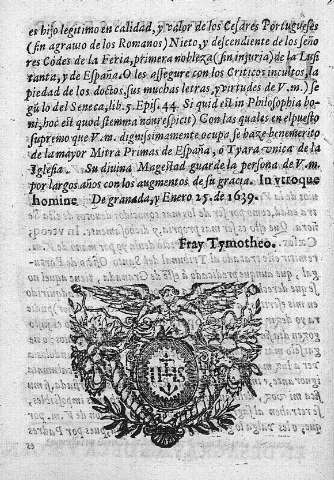 es hijo legitimo en calidad, y valor de los Cesares Portugueses
(sin agrauio de los Romanos) Nieto, y descendiente de los seño
res Cõdes de la Feria, primera nobleza (sin injuria) de la Lusi
tania, y de España. O les assegure con los Criticos incultos, la
piedad de los doctos, sus muchas letras, y virtudes de V.m.) se
gũ lo del Seneca, lib. 5. Epis. 44. Si quid est in Philosophia bo-
ni, hoc est quod stemma non respicit) Con las quales en el puesto
supremo que V.m. dignissimamente ocupa se haze benemerito
de la mayor Mitra Primas de España, o Tyara vnica de la
Iglesia. Su diuina Magestad guarde la persona de V.m.
por largos años con los augmentos de su gracia. In vtroque
homine De granada, y Enero 25. de 1639.
Fray Tymotheo.
IHS